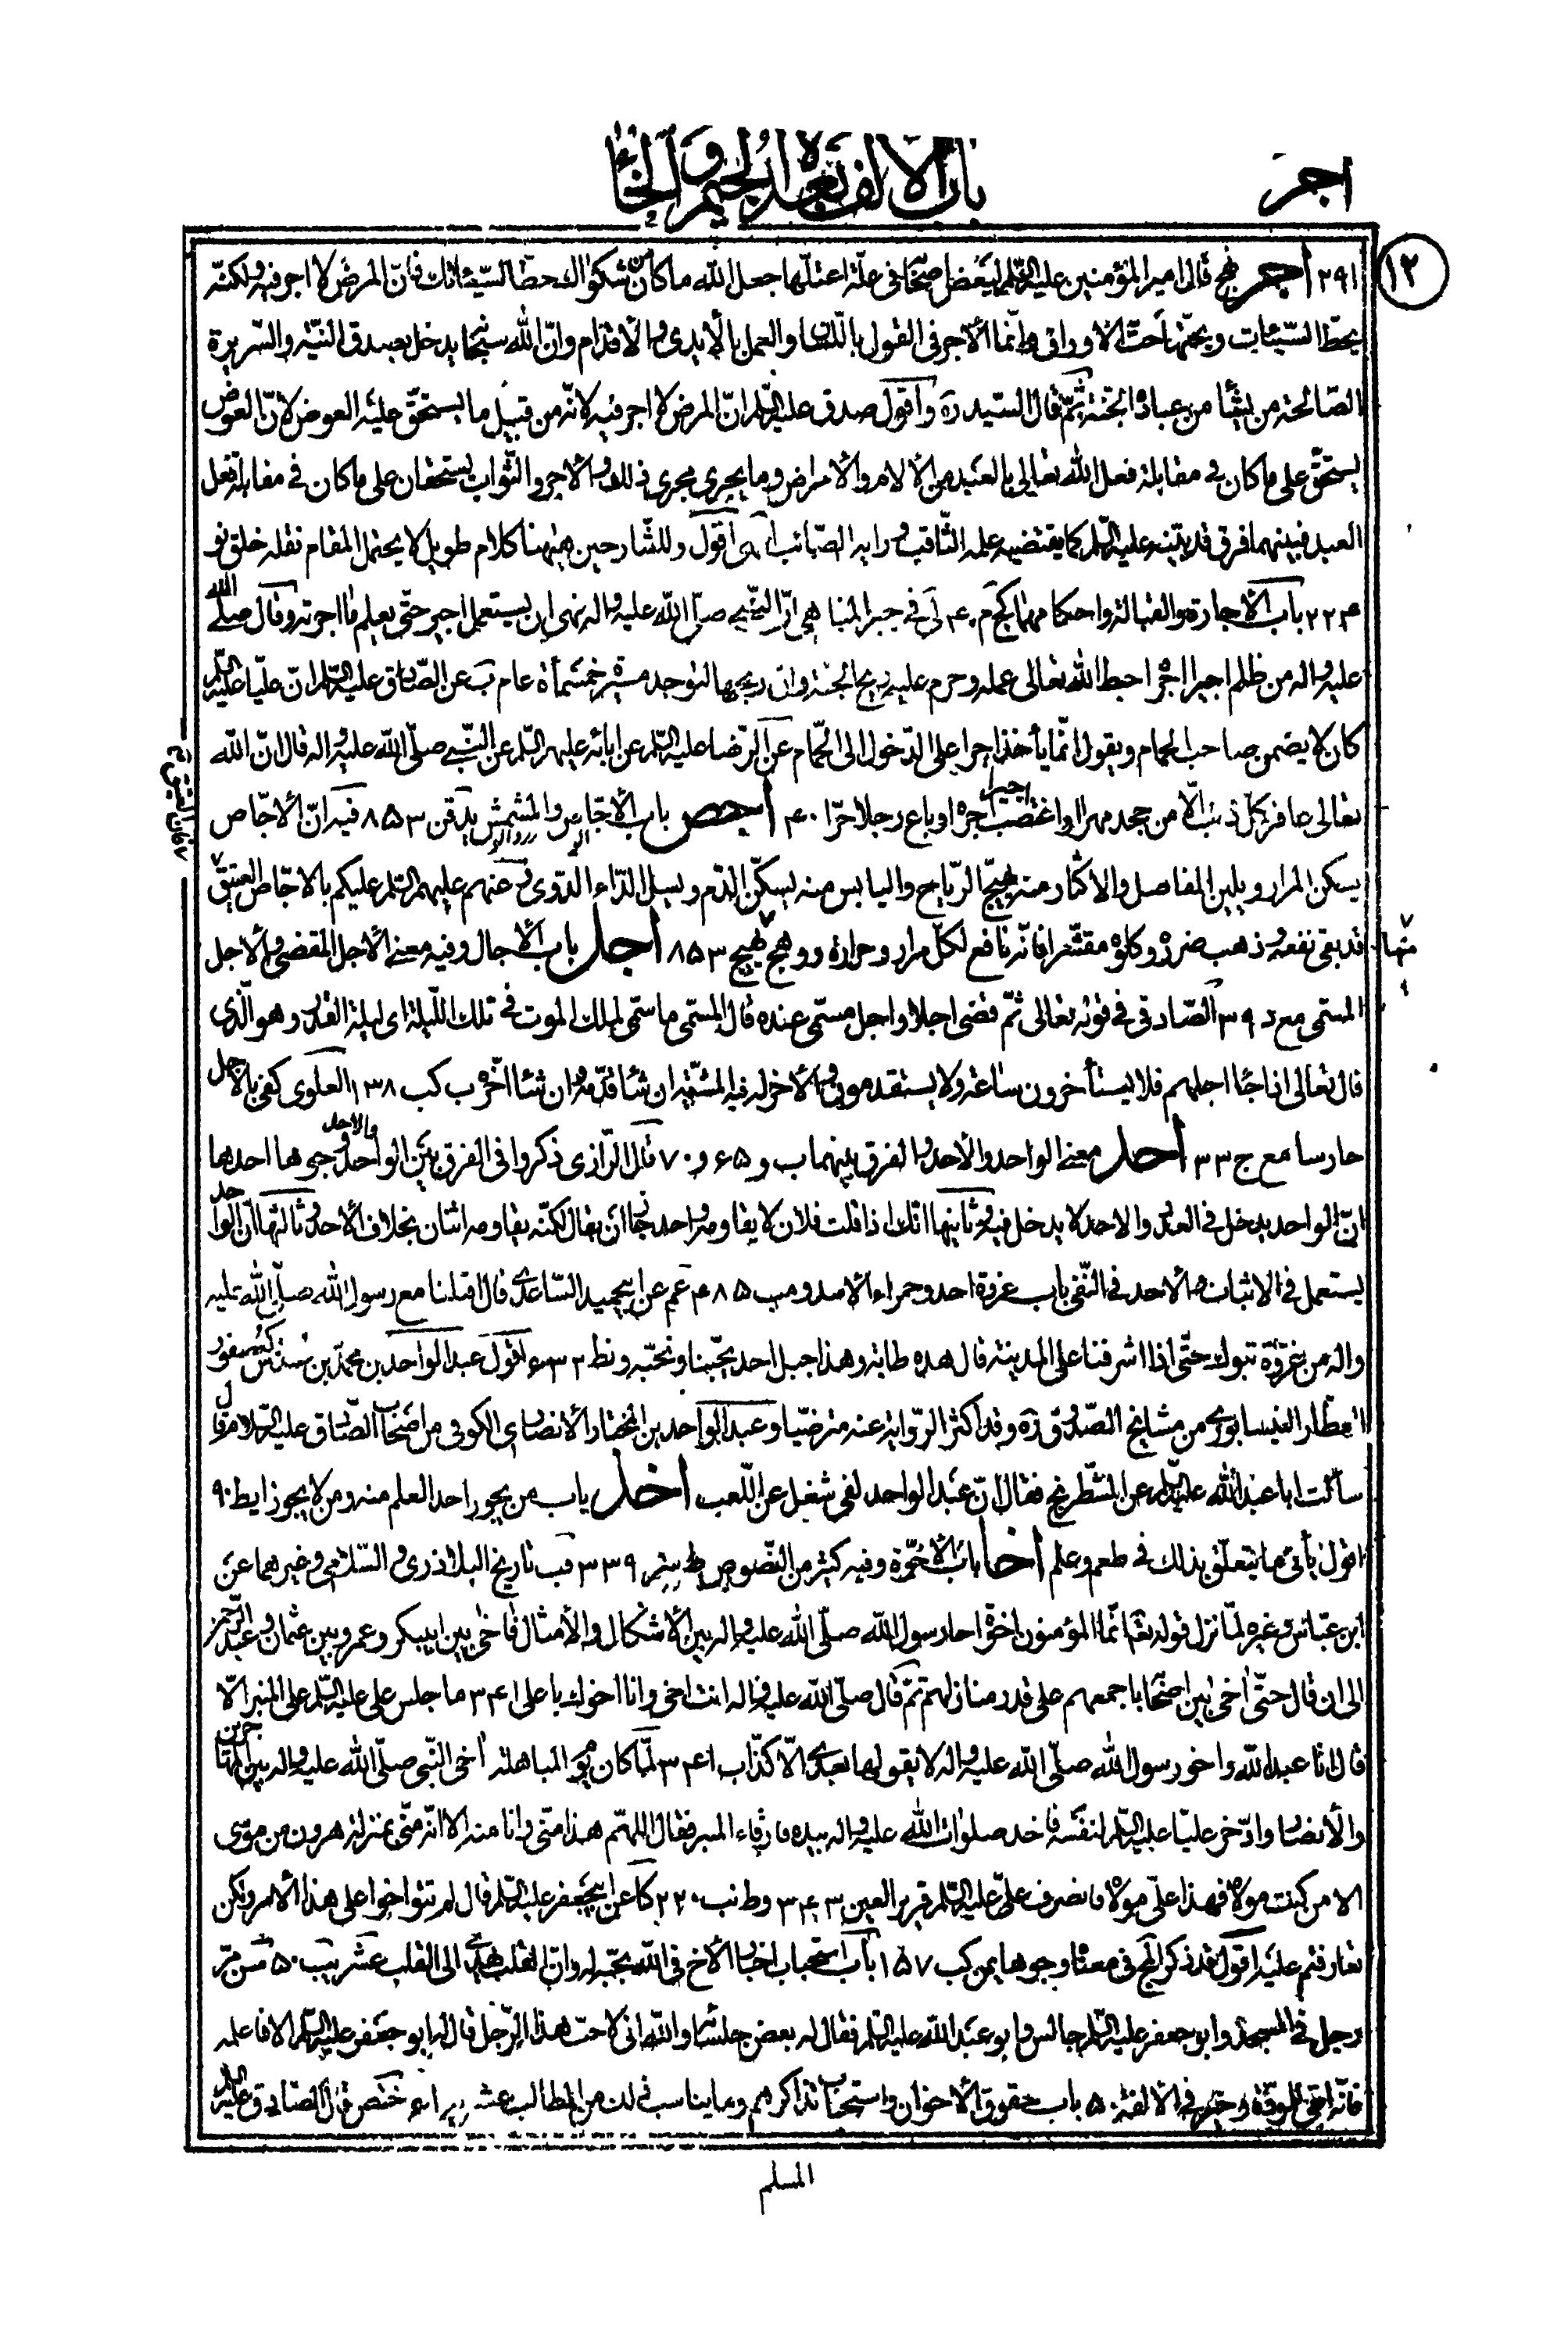 باب الالف بعده الجيم والخاء
اجر
١٢
٢٩١ اجر نهج قال امير المؤمنين عليه السّلم لبعض اصحابه فى علّة اعتلّها جعل الله ما كان من شكواك حطّا لسيّئاتك فانّ المرض لا اجر فيه ولكنّه
يحطّ السّيئات ويحتّها حتّ الاوراق وانّما الأجر فى القول باللّسان والعمل بالأيدى والأقدام وانّ الله سبحانه يدخل بصدق النيّة والسّريرة
الصّالحة من يشأ من عباده الجنّة ثمّ قال السّيد ره واقول صدق عليه السّلم انّ المرض لا اجر فيه لانّه من قبيل ما يستحقّ عليه العوض لانّ العوض
يستحقّ على ما كان فى مقابلة فعل الله تعالى بالعبد من الألام والأمراض وما يجرى مجرى ذلك والأجر والثّواب يستحقان على ما كان فى مقابلة فعل
العبد فبينهما فرق قد بيّنه عليه السّلم كما يقتضيه علمه الثّاقب ورايه الصّائب انتهى اقول وللشّارحين هيهنا كلام طويل لا يحتمل المقام نقله خلق نو
٢٢٤ باب الأجارة والقبالة واحكامهما كج م ٤٠ لى فى خبر المناهى انّ النّبى صلّى الله عليه واله نهى ان يستعمل اجير حتّى يعلم ما اجرته وقال صلّى الله
عليه واله من ظلم اجيرا اجرا احبط الله تعالى عمله وحرم عليه ريح الجنّة وانّ ريحها لتوجد من مسيرة خمسمأة عام ب عن الصّادق عليه السّلم انّ عليّا عليه السّلم
كان لا يضمن صاحب الحمام ويقول انّما يأخذ اجرا على الدّخول الى الحّمام عن الرّضا عليه السّلم عن ابائه عليهم السّلم عن النّبى صلّى الله عليه واله قال انّ الله
تعالى غافر كلّ ذنب الّا من جحد مهرا او اغتصب اجيرا اجره او باع رجلا حرّا ٤٠ اجص باب الأجّاص والمشمش يد قن ٨٥٣ فيه انّ الأجّاص
يسكن المرار ويلين المفاصل والاكثار منه يهيّج الرّياح واليابس منه يسكّن الدّم ويسلّ الدّاء الدّوى عنهم عليهم السّلم عليكم بالاجّاص العتيق
قد بقى نفعه وذهب ضرره وكلوه مقشّرا فانّه نافع لكلّ مرار وحرارة ووهج يهيج منها ٨٥٣ اجل باب الأجال وفيه معنى الأجل المقضى والأجل
المسمى مع د ٣٩ الصّادقى فى قوله تعالى ثمّ قضى اجلا واجل مسمّى عنده قال المسمّى ما سمّى لملك الموت فى تلك اللّيلة اى ليلة القدر وهو الّذى
قال تعالى اذا جاء اجلهم فلا يستأخرون ساعة ولا يستقدمون والأخر له فيه المشيّة ان شاء قدّمه وان شاء اخّره ب كب ١٣٨ العلوى كفى بالأجل
حارسا مع ج ٣٣ احد معنى الواحد والأحد والفرق بينهما ب و ٦٥ و ٧٠ قال الرّازى ذكروا فى الفرق بين الواحد والاحد وجوها احدها
انّ الواحد يدخل فى العدد والاحد لا يدخل فيه وثانيها انّك اذا قلت فلان لا يقاومه واحد جاز ان يقال لكنّه يقاومه اثنان بخلاف الأحد وثالثها انّ الواحد
يستعمل فى الاثبات والأحد فى النّفى باب غزوة احد وحمراء الأسد و مب ٤٨٥ عم عن ابيحميد السّاعدى قال قبلنا مع رسول الله صلّى الله عليه
واله من غزوة تبوك حتّى اذا اشرفنا على المدينة قال هذه طابة وهذا جبل احد يحبّنا ونحبّه و نط ٦٣٣ اقول عبد الواحد بن محمّد بن عبدوس
العطّار النيسابورى من مشايخ الصّدوق ره وقد اكثر الرّواية عنه مترضّيا وعبد الواحد بن المختار الأنصارى الكوفى من اصحاب الصّادق عليه السّلام قال
سألت ابا عبد الله عليه السّلم عن الشّطرنج فقال انّ عبد الواحد لفى شغل عن اللّعب اخذ باب من يجوز اخذ العلم منه ومن لا يجوز ا يط ٩٠
اقول يأتى ما يتعلّق بذلك فى طعم وعلم اخا باب الأخوّة وفيه كثير من النّصوص ط سز ٣٣٩ قب تاريخ البلاذرى والسّلامى وغيرهما عن
ابن عبّاس وغيره لمّا نزل قوله تعالى انّما المؤمنون اخوة اخا رسول الله صلّى الله عليه واله بين الأشكال والأمثال فاخى بين ابيبكر وعمر وبين عثمان وعبد الرّحمن
الى ان قال حتّى اخى بين اصحابه باجمعهم على قدر منازلهم ثمّ قال صلّى الله عليه واله انت اخى وانا اخوك يا على ٣٤١ ما جلس علىّ عليه السّلم على المنبر الّا
قال انا عبد الله واخو رسول الله صلّى الله عليه واله لا يقولها بعدى الّا كذّاب ٣٤١ لمّا كان يوم المباهلة اخى النّبى صلّى الله عليه واله بين المهاجرين
والأنصار وادّخر عليّا عليه السّلم لنفسه فاخذ صلوات الله عليه واله بيده فارقاه المنبر فقال اللهمّ هذا منّى وانا منه الا انّه منّى بمنزلة هرون من موسى
الا من كنت مولاه فهذا علىّ مولاه فانصرف علىّ عليه السّلم قرير العين ٣٤٣ و ط نب ٢٢٠ كا عن ابيجعفر عليه السّلم قال لم تتواخوا على هذا الأمر ولكن
تعارفتم عليه اقول قد ذكر المج فى معناه وجوها يمن كب ١٥٧ باب استحباب اخبار الأخ فى الله بحبّه له وانّ القلب يهدى الى القلب عشر يب ٥٠ سن مرّ
رجل فى المسجد وابو جعفر عليه السّلم جالس وابو عبد الله عليه السّلم فقال له بعض جلسائه والله انى لاحبّ هذا الرّجل قال له ابو جعفر عليه السّلم الا فاعلمه
فانّه ابقى للمودّة وخير فى الألفة ٥٠ باب حقوق الأخوان واستحباب تذاكرهم وما يناسب ذلك من المطالب عشر ختص قال الصّادق عليه السّلم
المسلم